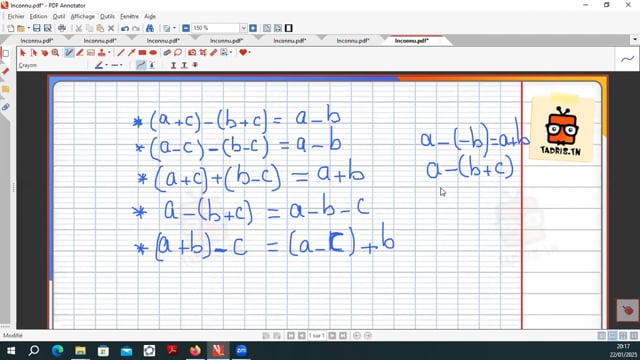 Inconnu.pdf* - PDF Annotator
Fichier Edition Affichage Insertion Document Outils Fenêtre Aide
150 %
Inconnu.pdf* Inconnu.pdf* Inconnu.pdf* Inconnu.pdf* Inconnu.pdf* Inconnu.pdf*
Crayon
* (a+c)-(b+c)= a-b
* (a-c)-(b-c)= a-b
* (a+c)+(b-c) = a+b
* a-(b+c) = a-b-c
* (a+b)-c = (a-c)+b
a-(-b)=a+b
a-(b+c)
TADRIS.TN
1 sur 1
20:17
22/01/2025